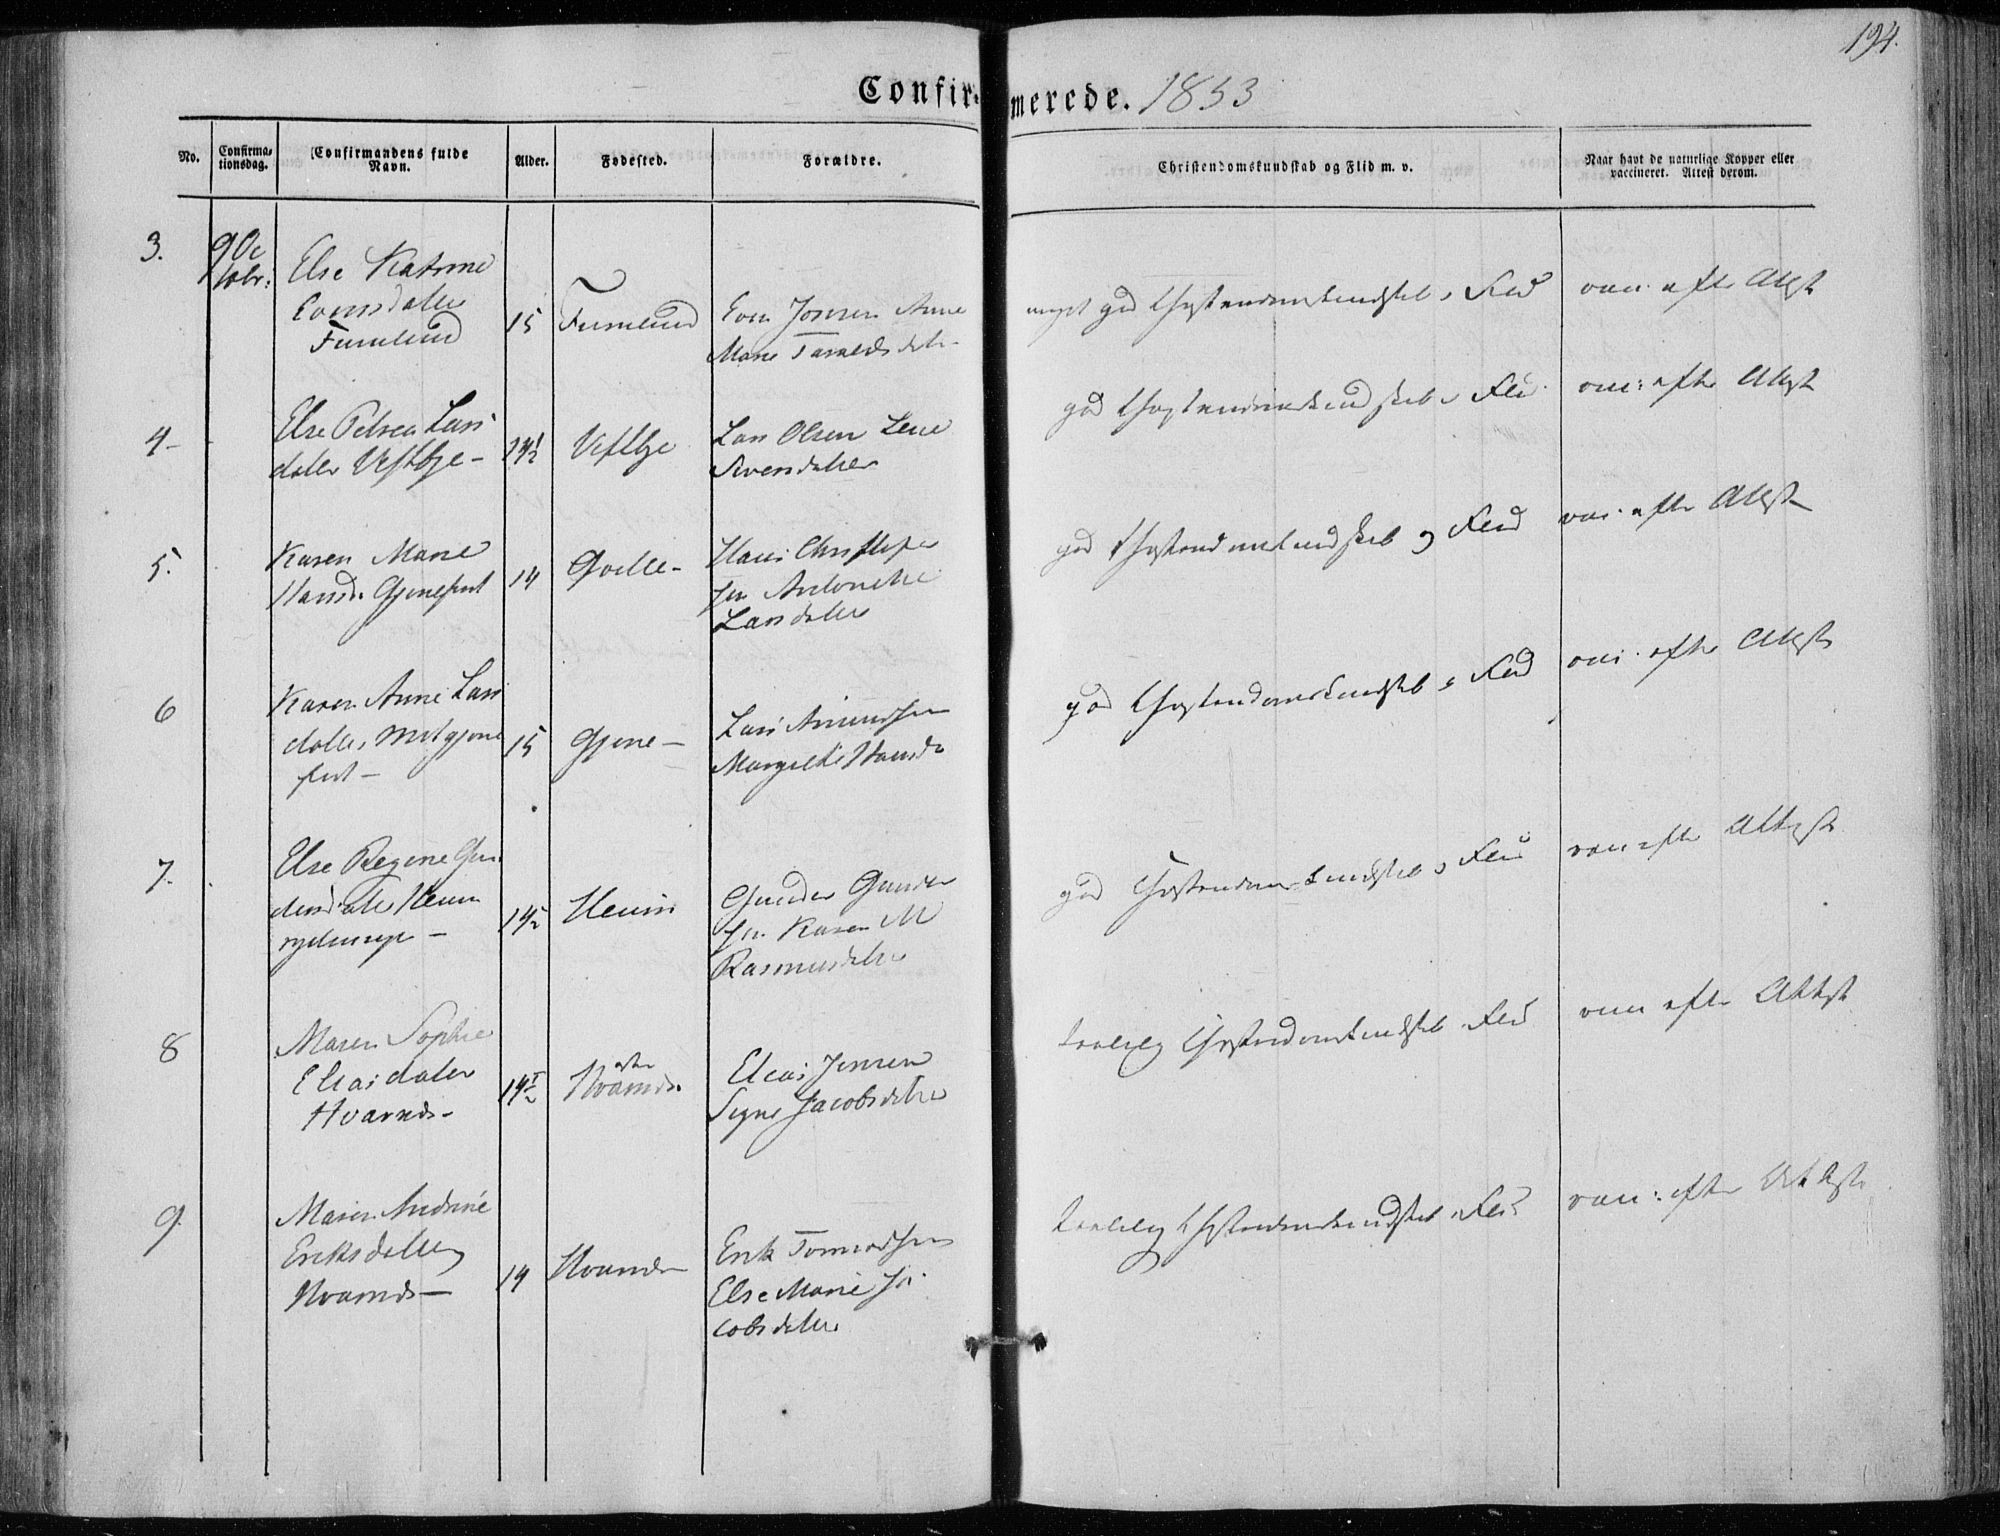 194.
Confirmerede. 1853
No.
Confirmationsdag.
Confirmandens fulde Navn.
Alder.
Fødested.
Forældre.
Christendomskundskab og Flid m. v.
Naar havt de naturlige Kopper eller vaccineret. Attest derom.
3.
9 Oc
tobr:
Else Katrine
Evensdatter
Furulund
15
Furulund
Even Jonsen Anne
Marie
meget god Christendomskundskab og Flid
vac: efter Attest
4
Else Petrea Lars
datter Vestbye
14½
Vestbye
Lars Olsen Lene
Sivensdatter
god Christendomskundskab og Flid
vac: efter Attest
5.
Karen Marie
Hansd.
14
Hans Christophe
sen Antonette
Larsdatter
god Christendomskundskab og Flid
vac: efter Attest
6
Karen Anne Lars
datter
15
Gjerne
Lars Amundsen
Margrethe Hansd
god Christendomskundskab og Flid
vac: efter Attest
7.
Else Regine Gun
dersdatter
14½
Gunder Gunder
sen Karen M
Rasmusdatter
god Christendomskundskab og Flid
vac: efter Attest
8
Maren Sophie
Eliasdatter
Hvarnds
14½
Hvarnds
Elias Jensen
Signe Jacobsdatter
taalelig Christendomskundskab og Flid
vac: efter Attest
9.
Maren Andrine
Eriksdatter
Hvarnds
14
Hvarnds
Erik Tormodsen
Else Marie Ja
cobsdatter
taalelig Christendomskundskab og Flid
vac: efter Attest